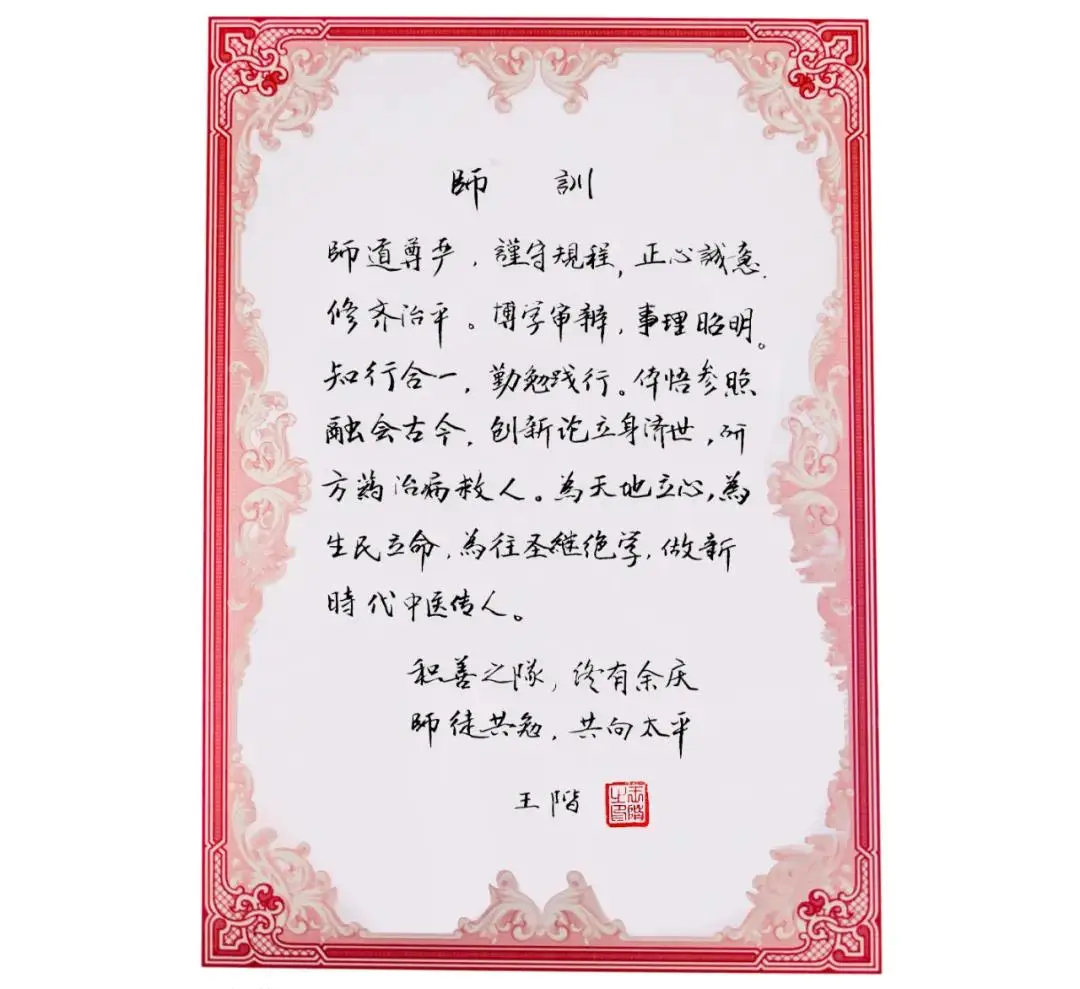 師 訓
師道尊严，謹守規程，正心誠意，
修齐治平。博学审辨，事理昭明。
知行合一，勤勉践行。体悟参照
融会古今，创新论立身济世，研
方药治病救人。為天地立心，為
生民立命，為往圣継绝学，做新
時代中医传人。
积善之隊，终有余庆
師徒共勉，共向太平
王階
王階之印